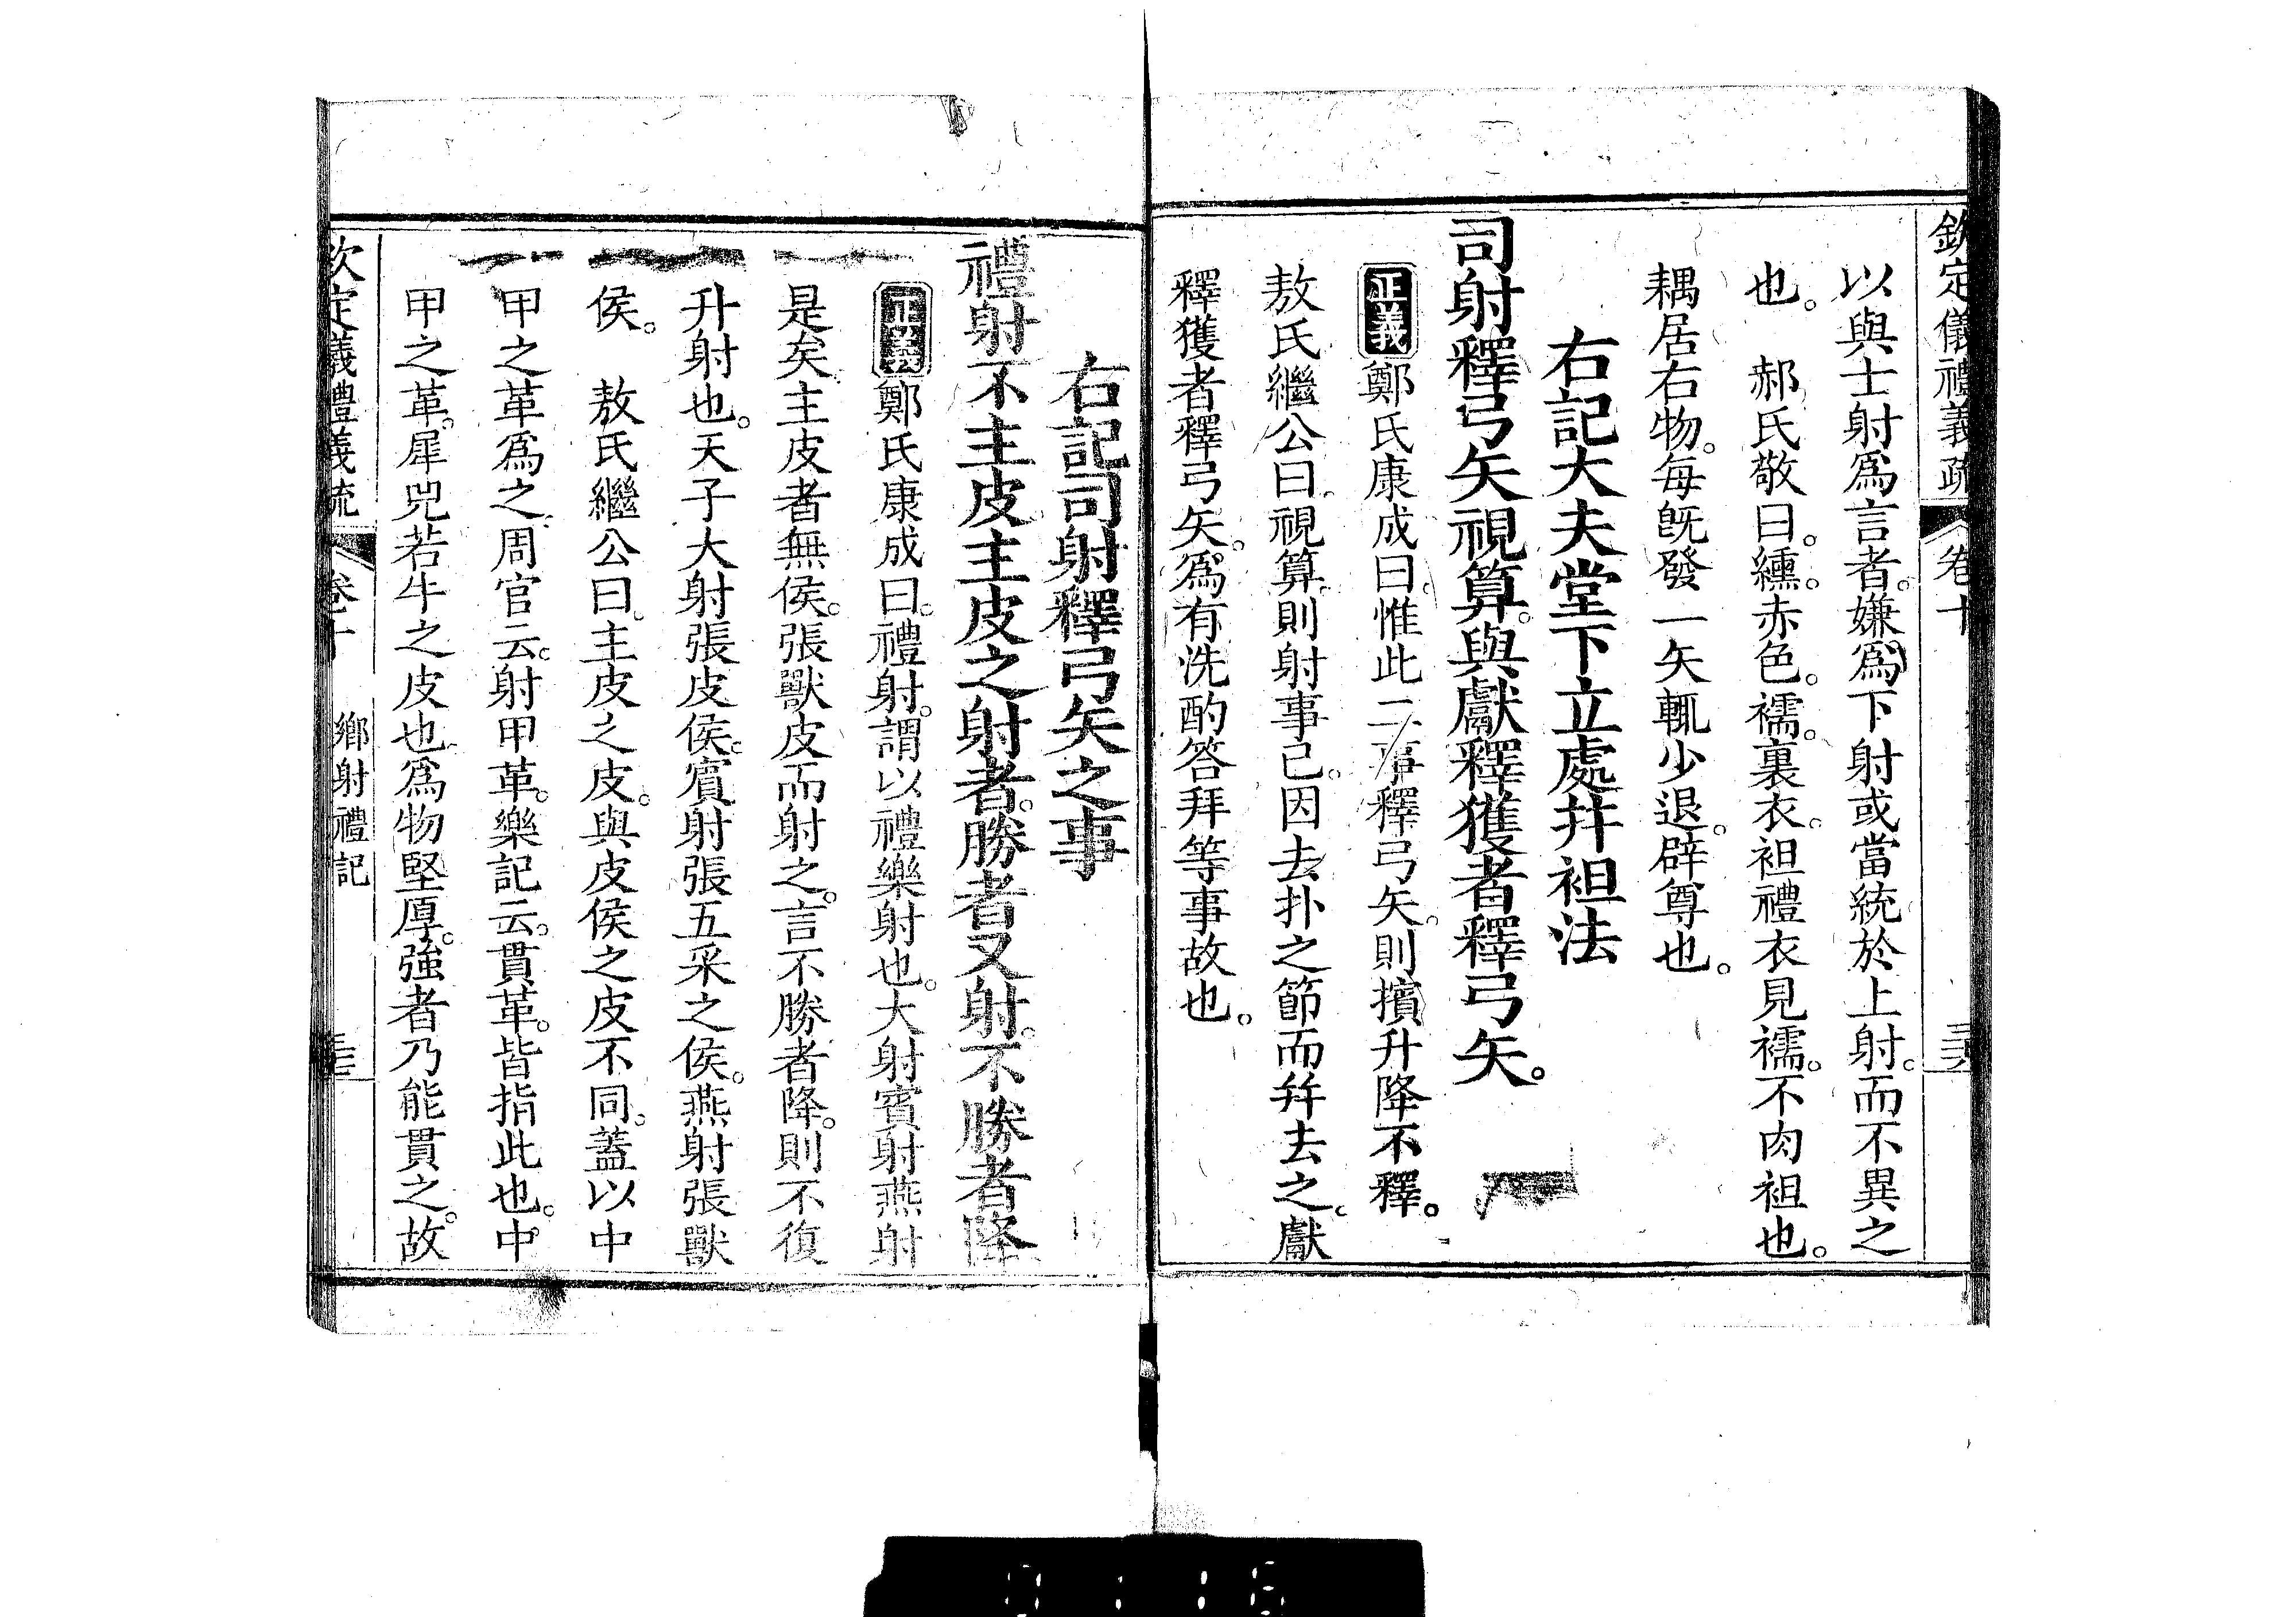 欽定儀禮義疏 卷十
以與士射爲言者。嫌爲下射或當統於上射。而不異之
也。 郝氏敬曰。纁。赤色。襦。裏衣。袒禮衣見襦。不肉袒也。
耦居右物。每旣發一矢輒少退。辟尊也。
右記大夫堂下立處幷袒法
司射釋弓矢視算。與獻釋獲者釋弓矢。
正義鄭氏康成曰。惟此二事釋弓矢。則擯升降不釋。
敖氏繼公曰。視算。則射事已。因去扑之節而幷去之。獻
釋獲者釋弓矢。爲有洗酌答拜等事故也。
右記司射釋弓矢之事
禮射不主皮主皮之射者。勝者又射。不勝者降
正義鄭氏康成曰。禮射。謂以禮樂射也。大射賓射燕射
是矣。主皮者無侯。張獸皮而射之。言不勝者降。則不復
升射也。天子大射張皮侯。賓射張五采之侯。燕射張獸
侯。 敖氏繼公曰。主皮之皮。與皮侯之皮不同。蓋以中
甲之革爲之。周官云。射甲革。樂記云。貫革。皆指此也。中
甲之革。犀兕若牛之皮也。爲物堅厚。強者乃能貫之。故
欽定儀禮義疏 卷十 鄉射禮記